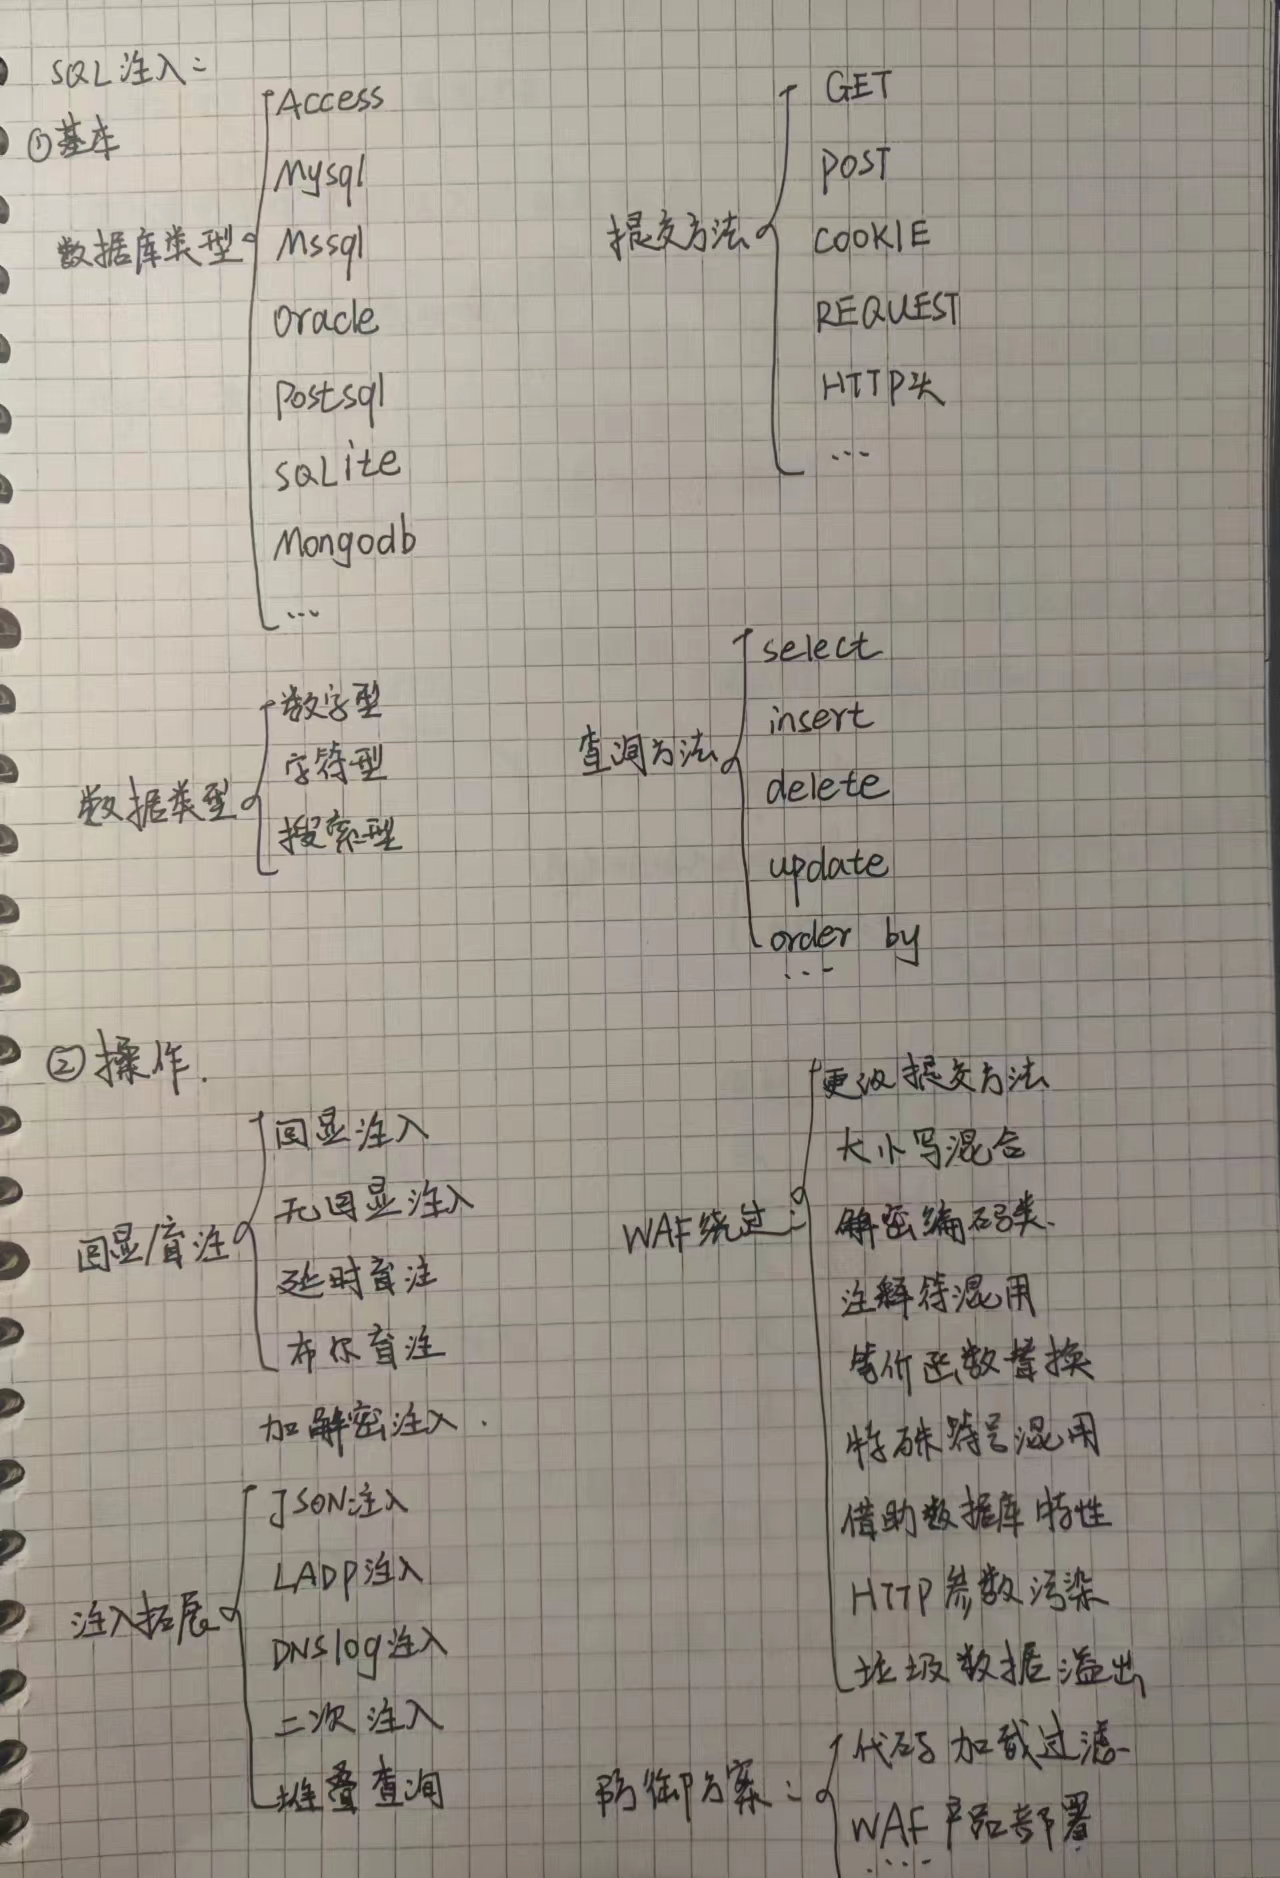 SQL注入:
①基本
数据库类型
Access
Mysql
Mssql
Oracle
Postsql
SQLite
Mongodb
...
提交方法
GET
POST
COOKIE
REQUEST
HTTP头
...
数据类型
数字型
字符型
搜索型
查询方法
select
insert
delete
update
order by
...
②操作.
回显/盲注
回显注入
无回显注入
延时盲注
布尔盲注
加解密注入.
注入拓展
JSON注入
LADP注入
DNSlog注入
二次注入
堆叠查询
WAF绕过:
更改提交方法
大小写混合
解密编码类.
注释符混用
等价函数替换
特殊符号混用
借助数据库特性
HTTP参数污染
垃圾数据溢出
防御方案:
代码加载过滤
WAF产品部署
....